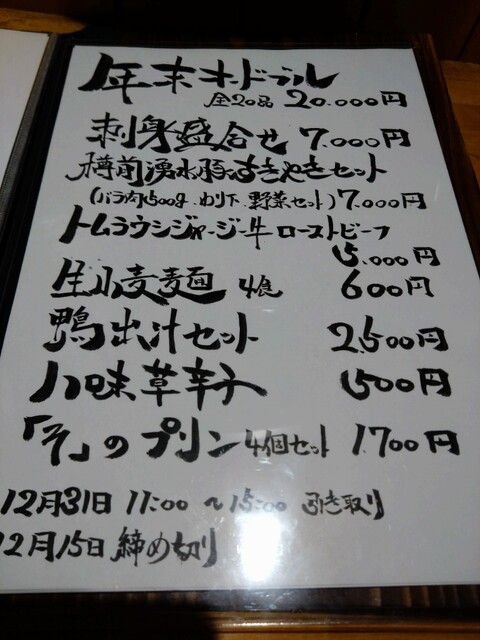 年末オードブル
全20品 20.000円
刺身盛合せ 7.000円
樽前湧水豚すきやきセット
(バラ肉500g、わり下、野菜セット) 7.000円
トムラウシジャージー牛ローストビーフ
5.000円
生小麦麺 4食 600円
鴨出汁セット 2,500円
八味草辛子 500円
「そ」のプリン 4個セット 1.700円
12月31日 11:00 〜 15:00 引き取り
12月15日 締め切り